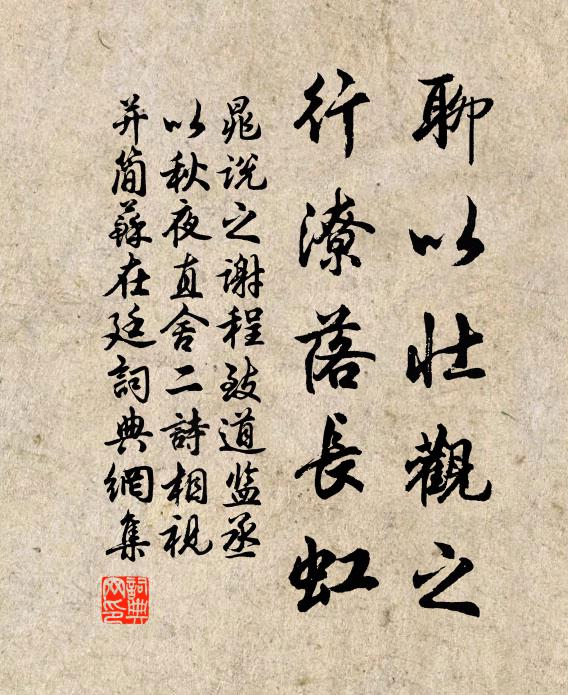 聊以壯觀之
行潦落長虹
晁說之謝程致道監丞
以秋夜直舍二詩相視
并簡蘇在廷詞典網集
詞典
网印